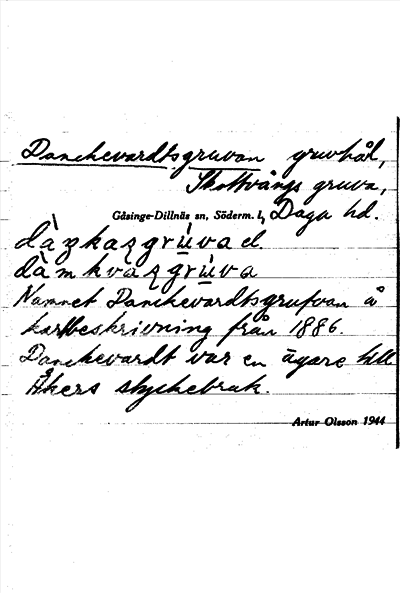 Danckevardtsgruvan gruvhål,
Skottvångs gruva,
Gåsinge-Dillnäs sn, Söderm. l, Daga hd.
dàŋkazgrùva el.
dàmkvazgrùva
Namnet Danckevardtsgrufvan å
kartbeskrivning från 1886.
Danckevardt var en ägare till
Åkers styckebruk.
Artur Olsson 1944